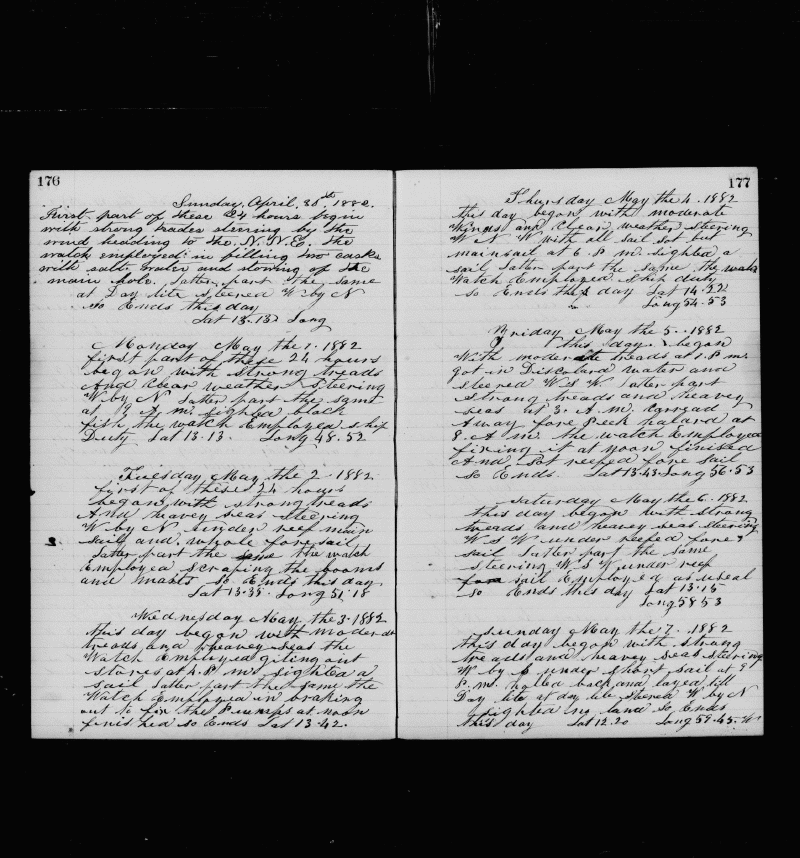 176
Sunday, April, 30th 1882.
First part of these 24 hours begin
with strong trades steering by the
wind heading to the N.N.E. the
watch employed in filling two casks
with salt water and stowing of the
main hole. Latter part the same
at Day lite steered W by N
so Ends this day
Lat 13.13 Long
Monday May the 1. 1882
first part of these 24 hours
began with strong treads
And Clear weather Steering
W by N latter part the same
at 9 A m. sighted black
fish the watch Employed ship
Duty Lat 13.13. Long 48.52
Tuesday May the 2. 1882.
first of these 24 hours
began with strong treads
And heavey seas steering
W by N under reef main
sail and whole fore sail
latter part the same the watch
Employed scraping the booms
and masts so Ends this day
Lat 13.38. Long 51.18
Wednesday May the 3. 1882
this day began with moderate
treads and heavey seas the
Watch Employed giting out
stores at 4. P m. sighted a
sail latter part the same the
Watch Employed in braking
out to fix the Pumps at noon
finished so Ends Lat 13.42.
177
Thursday May the 4. 1882
this day began with moderate
Winds and Clear weather steering
W N W with all sail sot but
mainsail at 6. P m. sighted a
sail latter part the same the
Watch Employed Ship duty
so Ends the day Lat 14.22
Long 54.53
Friday May the 5. 1882
this day began
With moderate treads at 1. P m.
got in Discolard water and
steered W S W latter part
strong treads and heavey
seas at 3. A. m. Carread
Away fore Peek halard at
8. A m. the watch Employed
fixing it at noon finished
And Sot reefed fore sail
so Ends. Lat 13.43. Long 56.53
Saturday May the 6. 1882.
this day began with strong
treads and heavey seas steering
W S W under reefed fore
sail latter part the same
steering W S W under reef
fore sail Employed as useal
so Ends this day Lat 13.15
Long 58 53
Sunday May the 7. 1882
this day began with strong
treads and heavey seas steering
W by S under Short sail at 9
P. m. halled back and layed till
Day lite at day lite steered W by N
sighted no land so Ends
this day Lat 12.20 Long 59.45. W